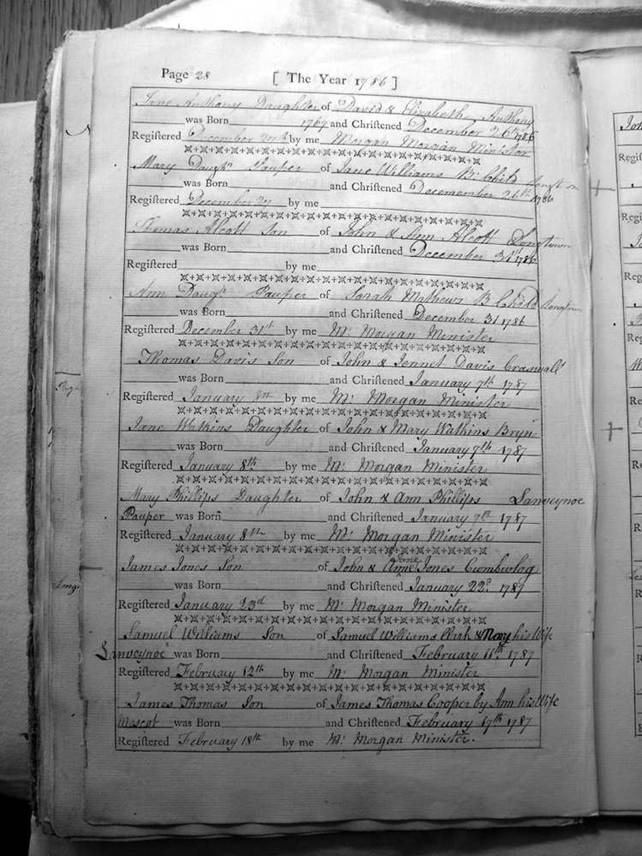 Page 28 [ The Year 1786 ]
Jane Anthony Daughter of David & Elizabeth Anthony
was Born 1767 and Christened December 26th 1786
Registered December by me Morgan Morgan Minister
Mary Daugr Pauper of Jane Williams B: Child Longtown
was Born and Christened Decemember 26th 1786
Registered December 27 by me
Thomas Alcott Son of John & Ann Alcott Longtown
was Born and Christened December 31st 1786
Registered by me
Ann Daugr Pauper of Sarah Mathews B Child Longtown
was Born and Christened December 31 1786
Registered December 31st by me Mr Morgan Minister
Thomas Davis Son of John & Jennet Davis Craswall
was Born and Christened January 7th 1787
Registered January 8th by me Mr Morgan Minister
Jane Watkins Daughter of John & Mary Watkins Bryn
was Born and Christened January 7th 1787
Registered January 8th by me Mr Morgan Minister
Mary Phillips Daughter of John & Ann Phillips Lanveynoe
Pauper was Born and Christened January 7th 1787
Registered January 8th by me Mr Morgan Minister
James Jones Son of John & Anne Jones
was Born and Christened January 22d 1787
Registered January 23d by me Mr Morgan Minister
Samuel Williams Son of Samuel Williams Clark & Mary his Wife
Lanveynoe was Born and Christened February 11th 1787
Registered February 12th by me Mr Morgan Minister
James Thomas Son of James Thomas Cooper by Ann his Wife
was Born and Christened February 17th 1787
Registered February 18th by me Mr Morgan Minister.